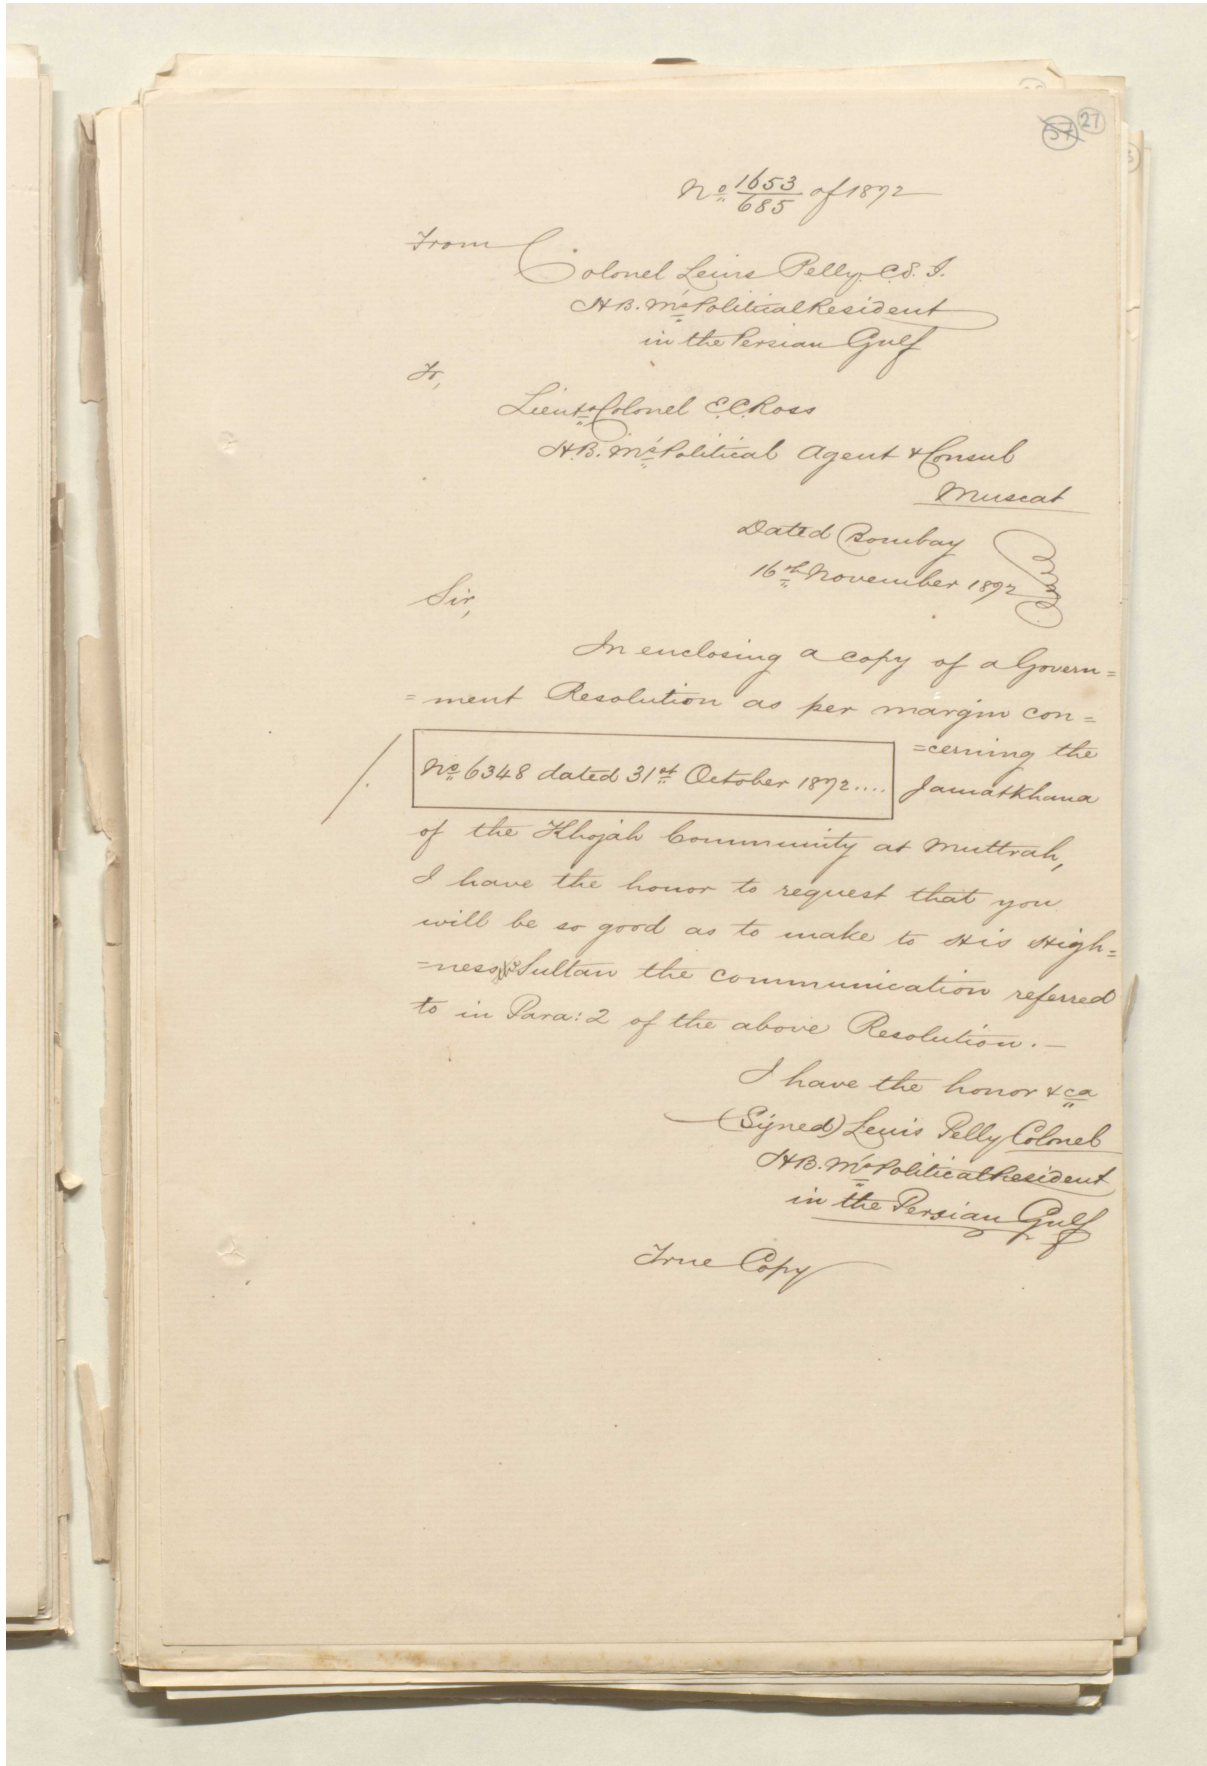 57 27
No 1653/685 of 1872
From
Colonel Lewis Pelly C.S.I.
H.B.M's Political Resident
in the Persian Gulf
To,
Lieut. Colonel E.C. Ross
H.B.M's Political Agent & Consul
Muscat
Dated Bombay
16th November 1872
Sir,
In enclosing a copy of a Govern=
=ment Resolution as per margin con=
=cerning the
No 6348 dated 31st October 1872.... Jamatkhana
of the Khojah Community at Muttrah,
I have the honor to request that you
will be so good as to make to His High=
=ness the Sultan the communication referred
to in Para: 2 of the above Resolution.—
I have the honor &ca
(Signed) Lewis Pelly Colonel
H.B.M's Political Resident
in the Persian Gulf
True Copy